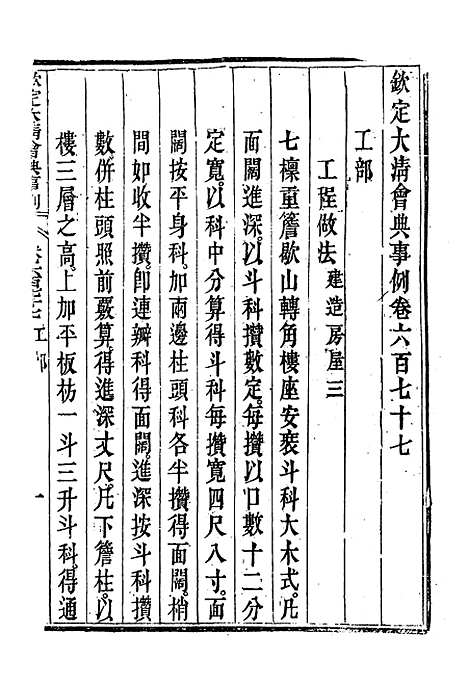 欽定大淸會典事例卷六百七十七
工部
工程做法 建造房屋三
七檁重簷歇山轉角樓座安裝斗科大木式。凡
面闊進深。以斗科攢數定。每攢以口數十二分
定寬。以科中分算得斗科每攢寬四尺八寸。面
闊按平身科。加兩邊柱頭科各半攢得面闊。梢
間如收半攢。卽連瓣科得面闊。進深按斗科攢
數倂柱頭照前覈算。得進深丈尺。凡下簷柱。以
樓三層之高。上加平板枋一斗三升斗科。得通
欽定大淸會典事例 工部 一